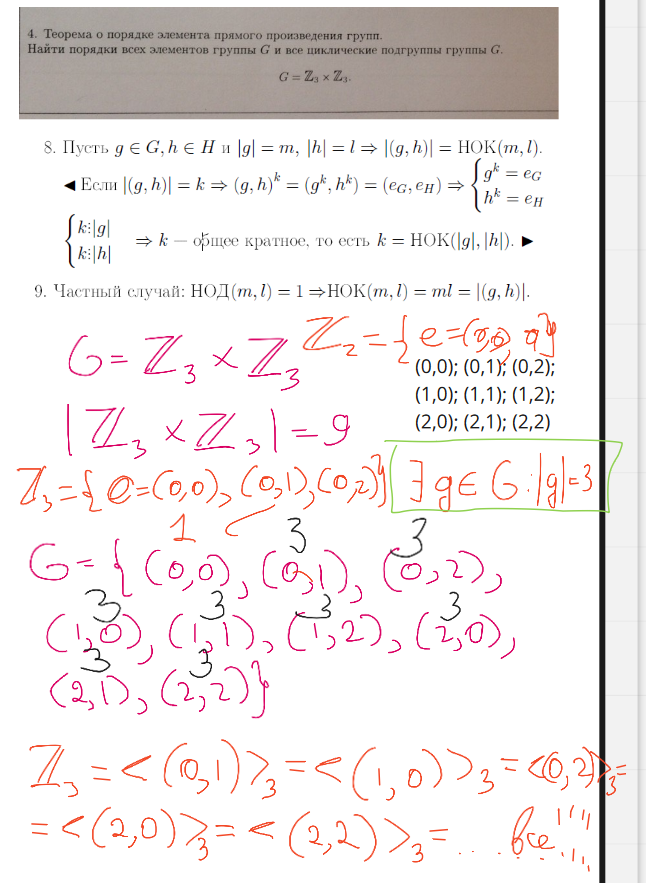 4. Теорема о порядке элемента прямого произведения групп.
Найти порядки всех элементов группы G и все циклические подгруппы группы G.
G = ℤ₃ × ℤ₃.
8. Пусть g ∈ G, h ∈ H и |g| = m, |h| = l ⇒ |(g, h)| = НОК(m, l).
◀ Если |(g, h)| = k ⇒ (g, h)ᵏ = (gᵏ, hᵏ) = (e_G, e_H) ⇒ { gᵏ = e_G
hᵏ = e_H
{ k⋮|g|
k⋮|h| ⇒ k — общее кратное, то есть k = НОК(|g|, |h|). ▶
9. Частный случай: НОД(m, l) = 1 ⇒ НОК(m, l) = ml = |(g, h)|.
G = ℤ₃ × ℤ₃ ℤ₂ = {e = (0,0), a}
(0,0); (0,1); (0,2);
(1,0); (1,1); (1,2);
(2,0); (2,1); (2,2)
|ℤ₃ × ℤ₃| = 9
ℤ₃ = {e = (0,0), (0,1), (0,2)} ∃ g ∈ G : |g| = 3
1 3 3
G = {(0,0), (0,1), (0,2),
3 3 3 3
(1,0), (1,1), (1,2), (2,0),
3 3
(2,1), (2,2)}
ℤ₃ = <(0,1)>₃ = <(1,0)>₃ = <(0,2)>₃ =
= <(2,0)>₃ = <(2,2)>₃ = ... все